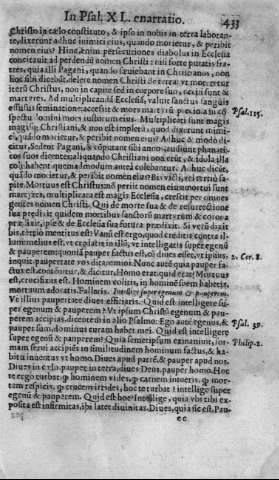 In Psal. XL. enarratio.
433
Christo in cælo constituto, & ipso in nobis in terra laborante,
quando morietur, & peribit
nomen eius? Hinc enim persecutiones diabolus in Ecclesia
concitauit ad perdendū nomen Christi:
tres, quia illi Pagani, quando sæuiebant in Christianos,
hoc sibi dicebāt, delere nomen Christi de terra: vt moreretur
iterū Christus, non in capite sed in corpore suo, occisi sunt &
martyres. Ad multiplicandā Ecclesiā, valuit sanctus sanguis
effusus: seminationi accessit & mors martyrū, preciosa in cō-
spectu domini mors iustorum eius. Multiplicati sunt magis
Psal. 115.
magisq; Christiani, & non est impletū, quod dixerunt inimici,
quādo morietur, & peribit nomen eius? Adhuc & modo dicitur,
Sedent Pagani, & cōputant sibi annos, audiunt phanaticos
suos dicentes: aliquando Christiani non erūt, & idola illa
coli habent quemadmodum antea colebantur. Adhuc dicūt,
quādo morietur, & peribit nomen eius? Bis victi, vel tertiò sapite.
Mortuus est Christus: nō periit nomen eius: mortui sunt
martyres, multiplicata est magis Ecclesia, crescit per omnes
gentes nomen Christi. Qui de morte sua & de resurrectione
sua prædixit, qui de moribus sanctorū martyrum & corona
prædixit, ipse & de Ecclesia sua futura prædixit. Si verū dixit
bis, tertiò mentitus est? Vanū est ergo, quod creditis cōtra illum:
melius est, vt credatis in illū, vt intelligatis super egenū
& pauperem: quoniā pauper factus est, cū diues esset, vt ipsius,
2. Cor. 8.
inquit paupertate vos ditaremini. Nunc autē quia pauper factus
est, contēnitur, & dicitur, Homo erat: quid erat? Mortuus
est, crucifixus est. Hominem colitis, in homine spem habetis,
mortuum adoratis. Falleris. Intellige super egenum & pauperem,
Ve illius paupertate diues efficiaris. Quid est intelligere super
egenum & pauperem? Vt ipsum Christū egenum & pauperem
accipias, dicentem in alio Psalmo: Ego autē egenus, &
pauper sum, dominus curam habet mei. Quid est intelligere
Psal. 39.
super egenū & pauperem? Quia semetipsum exinaniuit, formam
serui accipiēs in similitudinem hominum factus, & habitu
Philip. 2.
inuentus vt homo. Diues apud patrē, & pauper apud nos.
Diues in cœlo, pauper in terra, diues Deus, pauper homo. Hoc
te ergo turbat, ꝙ hominem vides, ꝙ carnem intueris, ꝙ mortem
respicis, ꝙ crucem irrides, hoc te turbat? Intellige super
egenū & pauperem. Quid est hoc? Intellige, quia vbi tibi exposita
est infirmitas, ibi latet diuinitas. Diues, quia sic est, Pau-